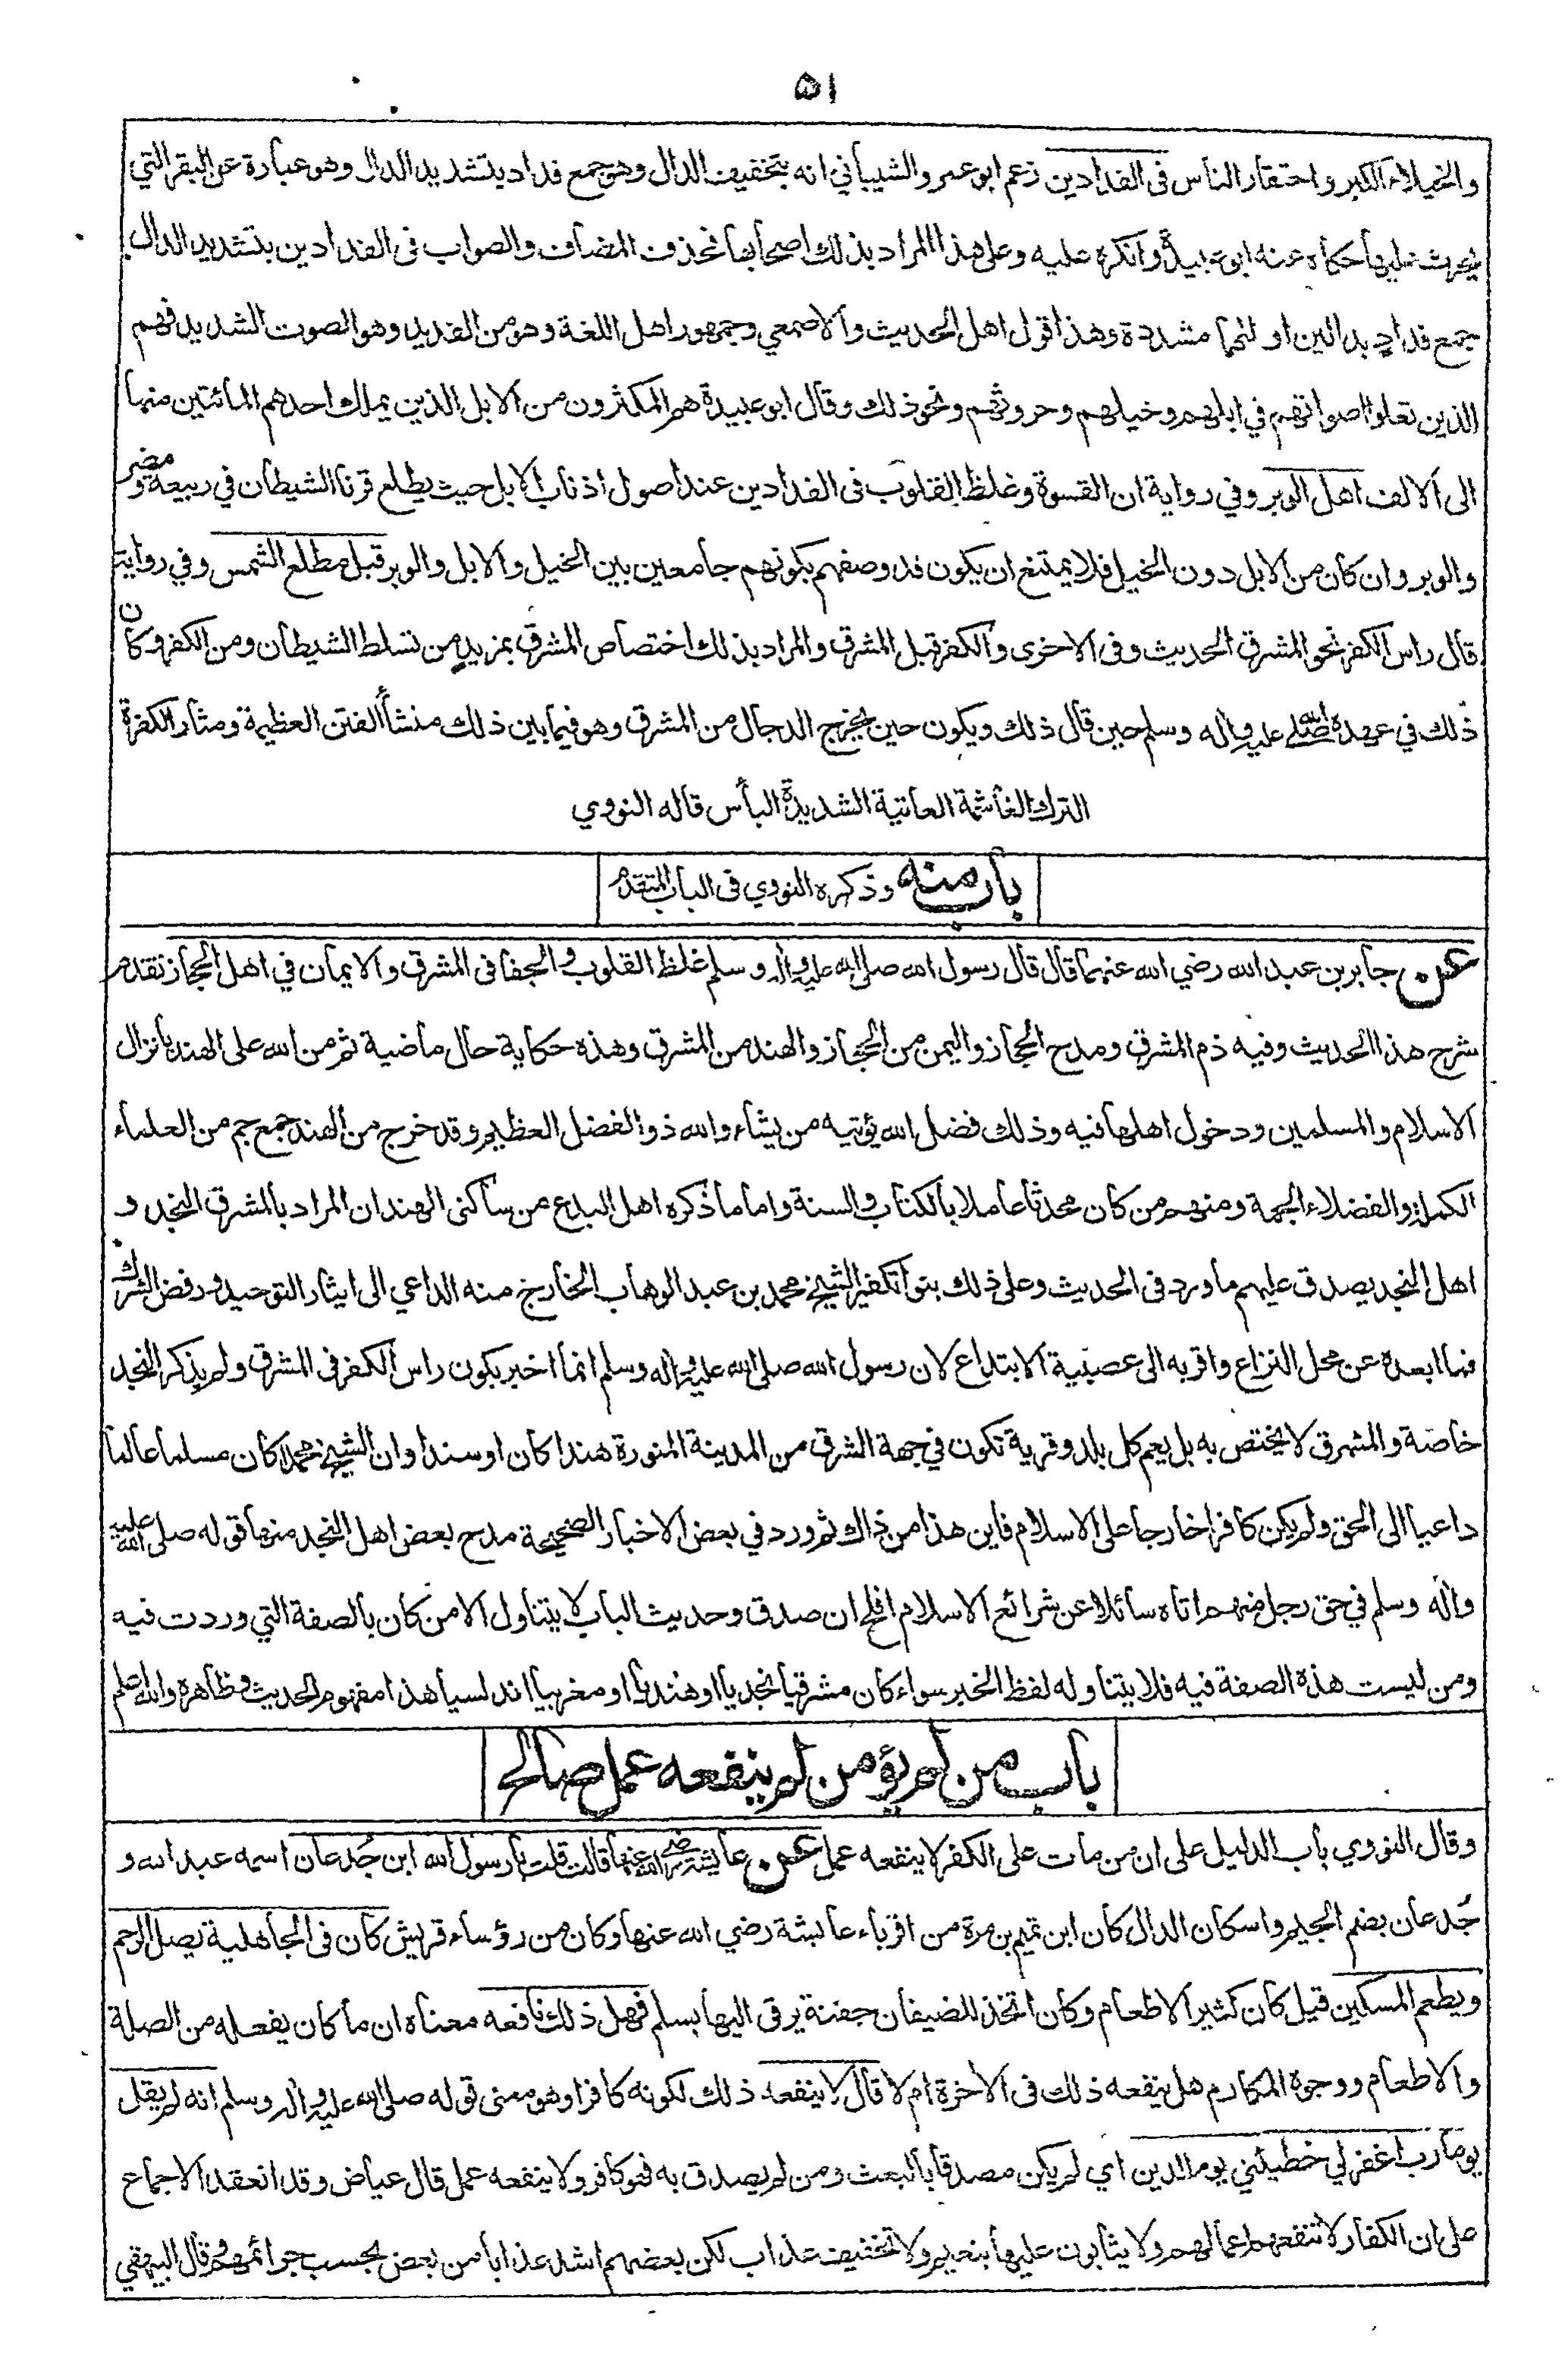 ٥١
والخيلاء الكبر واحتقار الناس فى الفدادين زعم ابو عمرو الشيباني انه بتخفيف الدال وهو جمع فداد بتشديد الدال وهو عبارة عن البقر التي
يحرث عليها حكاه عنه ابو عبيد وانكره عليه وعلى هذا المراد بذلك اصحابها فحذف المضاف والصواب فى الفدادين بتشديد الدال
جمع فداد بدالين اولهما مشددة وهذا قول اهل الحديث والاصمعي وجمهور اهل اللغة وهو من الفديد وهو الصوت الشديد فهم
الذين تعلوا اصواتهم في ابلهم وخيلهم وحروثهم ونحو ذلك وقال ابو عبيدة هم المكثرون من الابل الذين يملك احدهم المائتين منها
الى الالف اهل الوبر وفي رواية ان القسوة وغلظ القلوب فى الفدادين عند اصول اذناب الابل حيث يطلع قرنا الشيطان في ربيعة ومضر
والوبر وان كان من الابل دون الخيل فلا يمتنع ان يكون قد وصفهم بكونهم جامعين بين الخيل والابل والوبر قبل مطلع الشمس وفي رواية
قال راس الكفر نحو المشرق الحديث وفى الاخرى والكفر قبل المشرق والمراد بذلك اختصاص المشرق بمزيد من تسلط الشيطان ومن الكفر وكان
ذلك في عهده صلى الله عليه واله وسلم حين قال ذلك ويكون حين يخرج الدجال من المشرق وهو فيما بين ذلك منشأ الفتن العظيمة ومثار الكفرة
الترك الغاشمة العاتية الشديدة البأس قاله النووي
باب منه وذكره النووي فى الباب المتقدم
عن جابر بن عبد الله رضي الله عنهما قال قال رسول الله صلى الله عليه واله وسلم غلظ القلوب والجفا فى المشرق والايمان في اهل الحجاز تقدم
شرح هذا الحديث وفيه ذم المشرق ومدح الحجاز واليمن من الحجاز والهند من المشرق وهذه حكاية حال ماضية ثم من الله على الهند بانزال
الاسلام والمسلمين ودخول اهلها فيه وذلك فضل الله يؤتيه من يشاء والله ذو الفضل العظيم وقد خرج من الهند جمع جم من العلماء
الكملة والفضلاء الجمة ومنهم من كان محدثا عاملا بالكتاب والسنة واما ما ذكره اهل البدع من ساكنى الهند ان المراد بالمشرق النجد و
اهل النجد يصدق عليهم ما ورد فى الحديث وعلى ذلك بنوا تكفير الشيخ محمد بن عبد الوهاب الخارج منه الداعي الى ايثار التوحيد ورفض الشرك
فما ابعده عن محل النزاع واقربه الى عصبية الابتداع لان رسول الله صلى الله عليه واله وسلم انما اخبر بكون راس الكفر فى المشرق ولم يذكر النجد
خاصة والمشرق لا يختص به بل يعم كل بلد وقرية تكون في جهة الشرق من المدينة المنورة هندا كان او سندا وان الشيخ محمدا كان مسلما عالما
داعيا الى الحق ولم يكن كافرا خارجا على الاسلام فاين هذا من ذاك ثم ورد في بعض الاخبار الصحيحة مدح بعض اهل النجد منها قوله صلى الله عليه
واله وسلم في حق رجل منهم اتاه سائلا عن شرائع الاسلام افلح ان صدق وحديث الباب لا يتناول الا من كان بالصفة التي وردت فيه
ومن ليست هذه الصفة فيه فلا يتناوله لفظ الخبر سواء كان مشرقيا نجديا او هنديا او مغربيا اندلسيا هذا مفهوم الحديث وظاهره والله اعلم
باب من لم يؤمن لم ينفعه عمل صالح
وقال النووي باب الدليل على ان من مات على الكفر لا ينفعه عمل عن عايشة رضي الله عنها قالت قلت يا رسول الله ابن جُدعان اسمه عبد الله و
جُدعان بضم الجيم واسكان الدال كان ابن تميم بن مرة من اقرباء عايشة رضي الله عنها وكان من رؤساء قريش كان فى الجاهلية يصل الرحم
ويطعم المسكين قيل كان كثير الاطعام وكان اتخذ للضيفان جفنة يرقى اليها بسلم فهل ذلك نافعه معناه ان ما كان يفعله من الصلة
والاطعام ووجوه المكارم هل ينفعه ذلك فى الاخرة ام لا قال لا ينفعه ذلك لكونه كافرا وهو معنى قوله صلى الله عليه واله وسلم انه لم يقل
يوما رب اغفر لي خطيئتي يوم الدين اي لم يكن مصدقا بالبعث ومن لم يصدق به فهو كافر ولا ينفعه عمل قال عياض وقد انعقد الاجماع
على ان الكفار لا تنفعهم اعمالهم ولا يثابون عليها بنعيم ولا تخفيف عذاب لكن بعضهم اشد عذابا من بعض بحسب جرائمهم وقال البيهقي